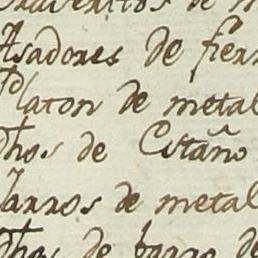 Asadores de fierr
Platon de metal
Dhos de Estaño
Jarros de metal
Dhos de barro de